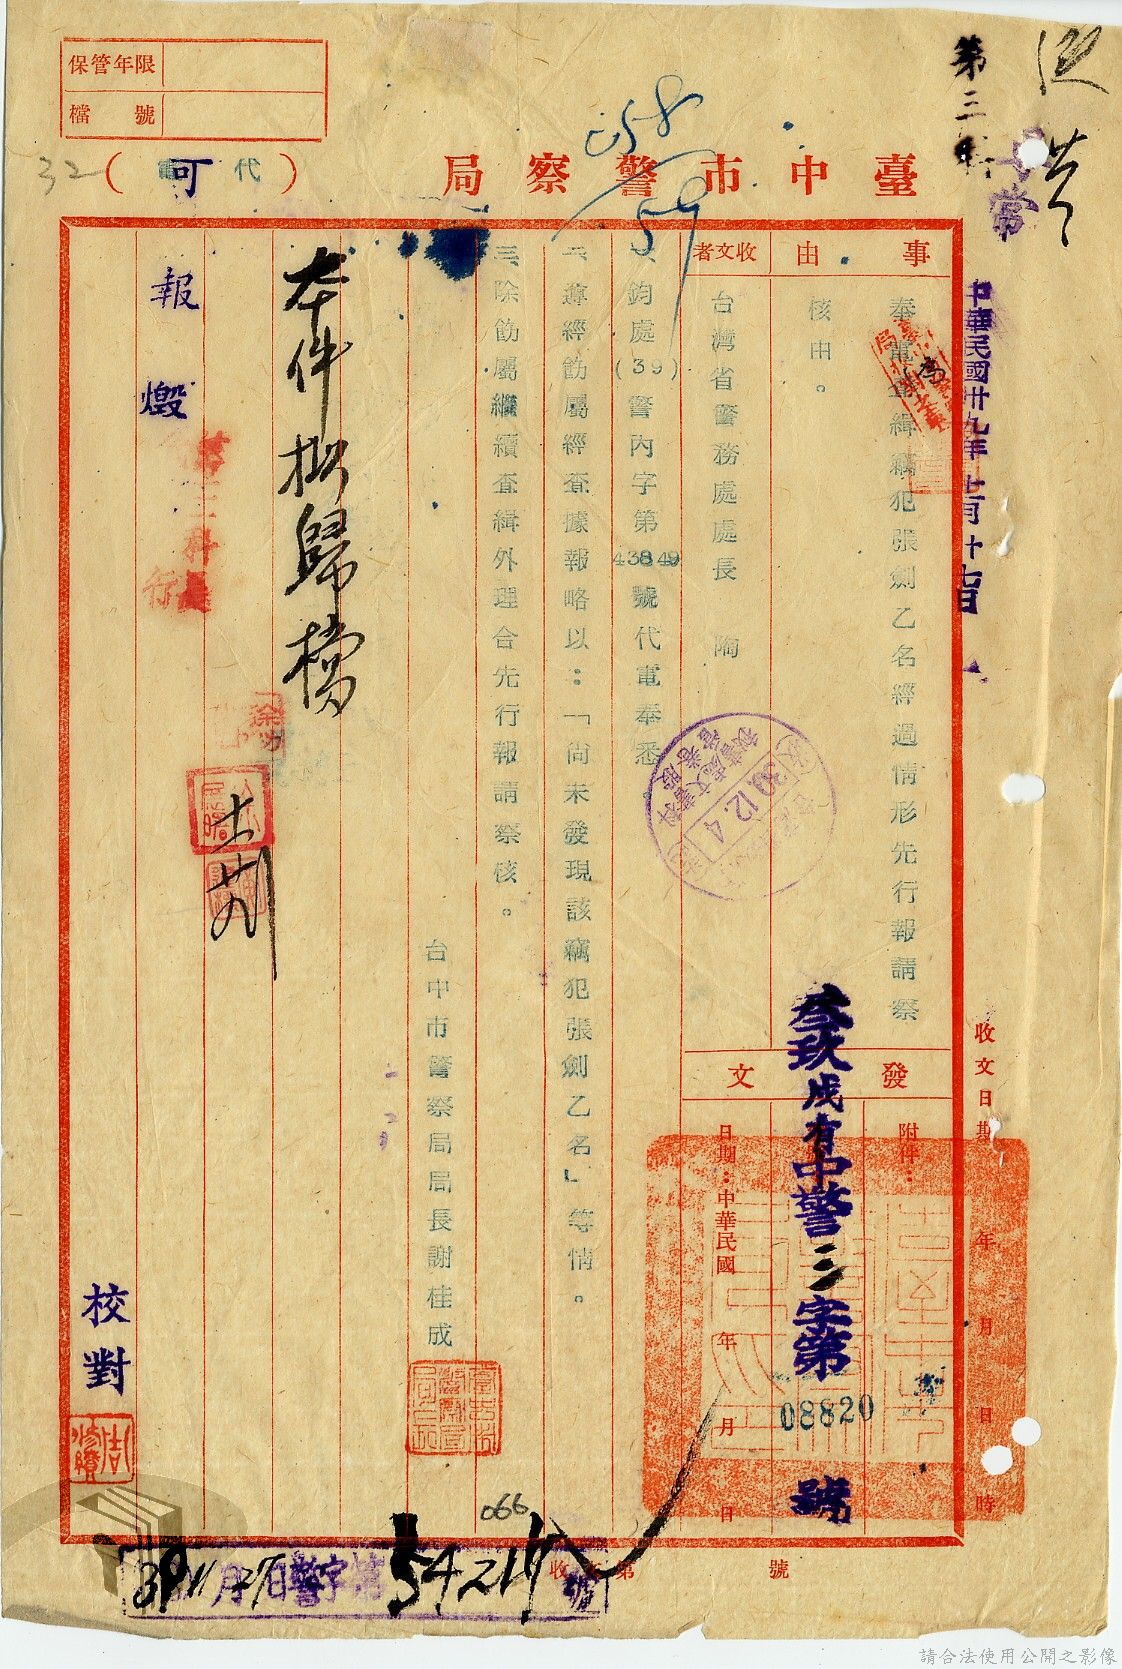 保管年限
檔號
臺中市警察局
(代電)
可
32
C58/59
第三科
中華民國卅九年
事由
奉電為查緝竊犯張劍乙名經過情形先行報請察
核由。
收文者
台灣省警務處處長 陶
一、鈞處(39)警內字第43849號代電奉悉。
二、遵經飭屬經查據報略以:「尚未發現該竊犯張劍乙名」等情。
三、除飭屬繼續查緝外理合先行報請察核。
台中市警察局局長謝桂成
本件擬歸檔
報燬
第三科
行
校對
發文
附件:
叁玖戌有中警三字第
08820
號
日期:中華民國 年 月 日
收文日期 年 月 日 時
39.12.4
066
39 11月27日警字第54214號
收文第 號
請合法使用公開之影像